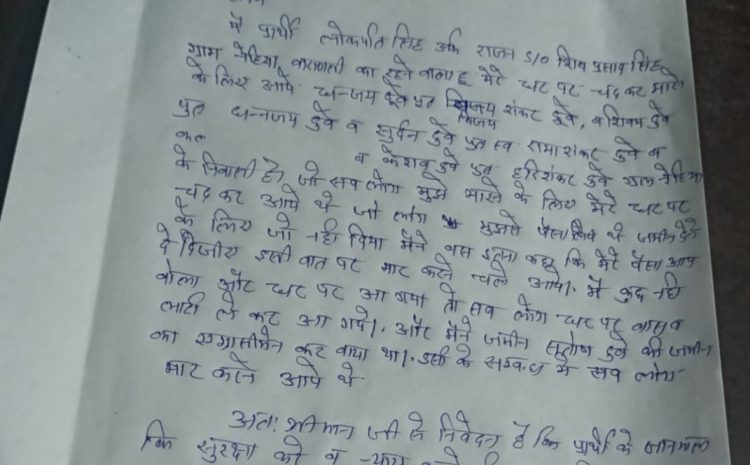 मैं प्रार्थी लोकपति सिंह उर्फ राजन S/O शिव प्रसाद सिंह
ग्राम नेहिया, वाराणसी का रहने वाला हूं मेरे घर पर चढ़ कर मारने
के लिए आये धनन्जय दुबे पुत्र विजय शंकर दुबे, व शिवम दुबे
पुत्र धनन्जय दुबे व सुर्दन दुबे पुत्र स्व रामाशंकर दुबे व
व केशव दुबे पुत्र हरिशंकर दुबे ग्राम नेहिया
के निवासी है। जो सब लोग मुझे मारने के लिए मेरे घर पर
चढ़ कर आये थे जो लोग मुझसे पैसा लिये थे जमीन देने
के लिए जो नही दिया मैंने बस इतना कहा कि मेरे पैसा आप
दे दिजीए इसी बात पर मार करने चले आये। मैं कुछ नही
बोला और घर पर आ गया तो सब लोग घर पर
लाठी ले कर आ गये। और मैंने जमीन दुबे की जमीन
का करवाया था। इसी के सम्बन्ध में सब लोग
मार करने आये थे
अतः श्रीमान जी से निवेदन है कि प्रार्थी के जानमाल
कि सुरक्षा को व न्याय